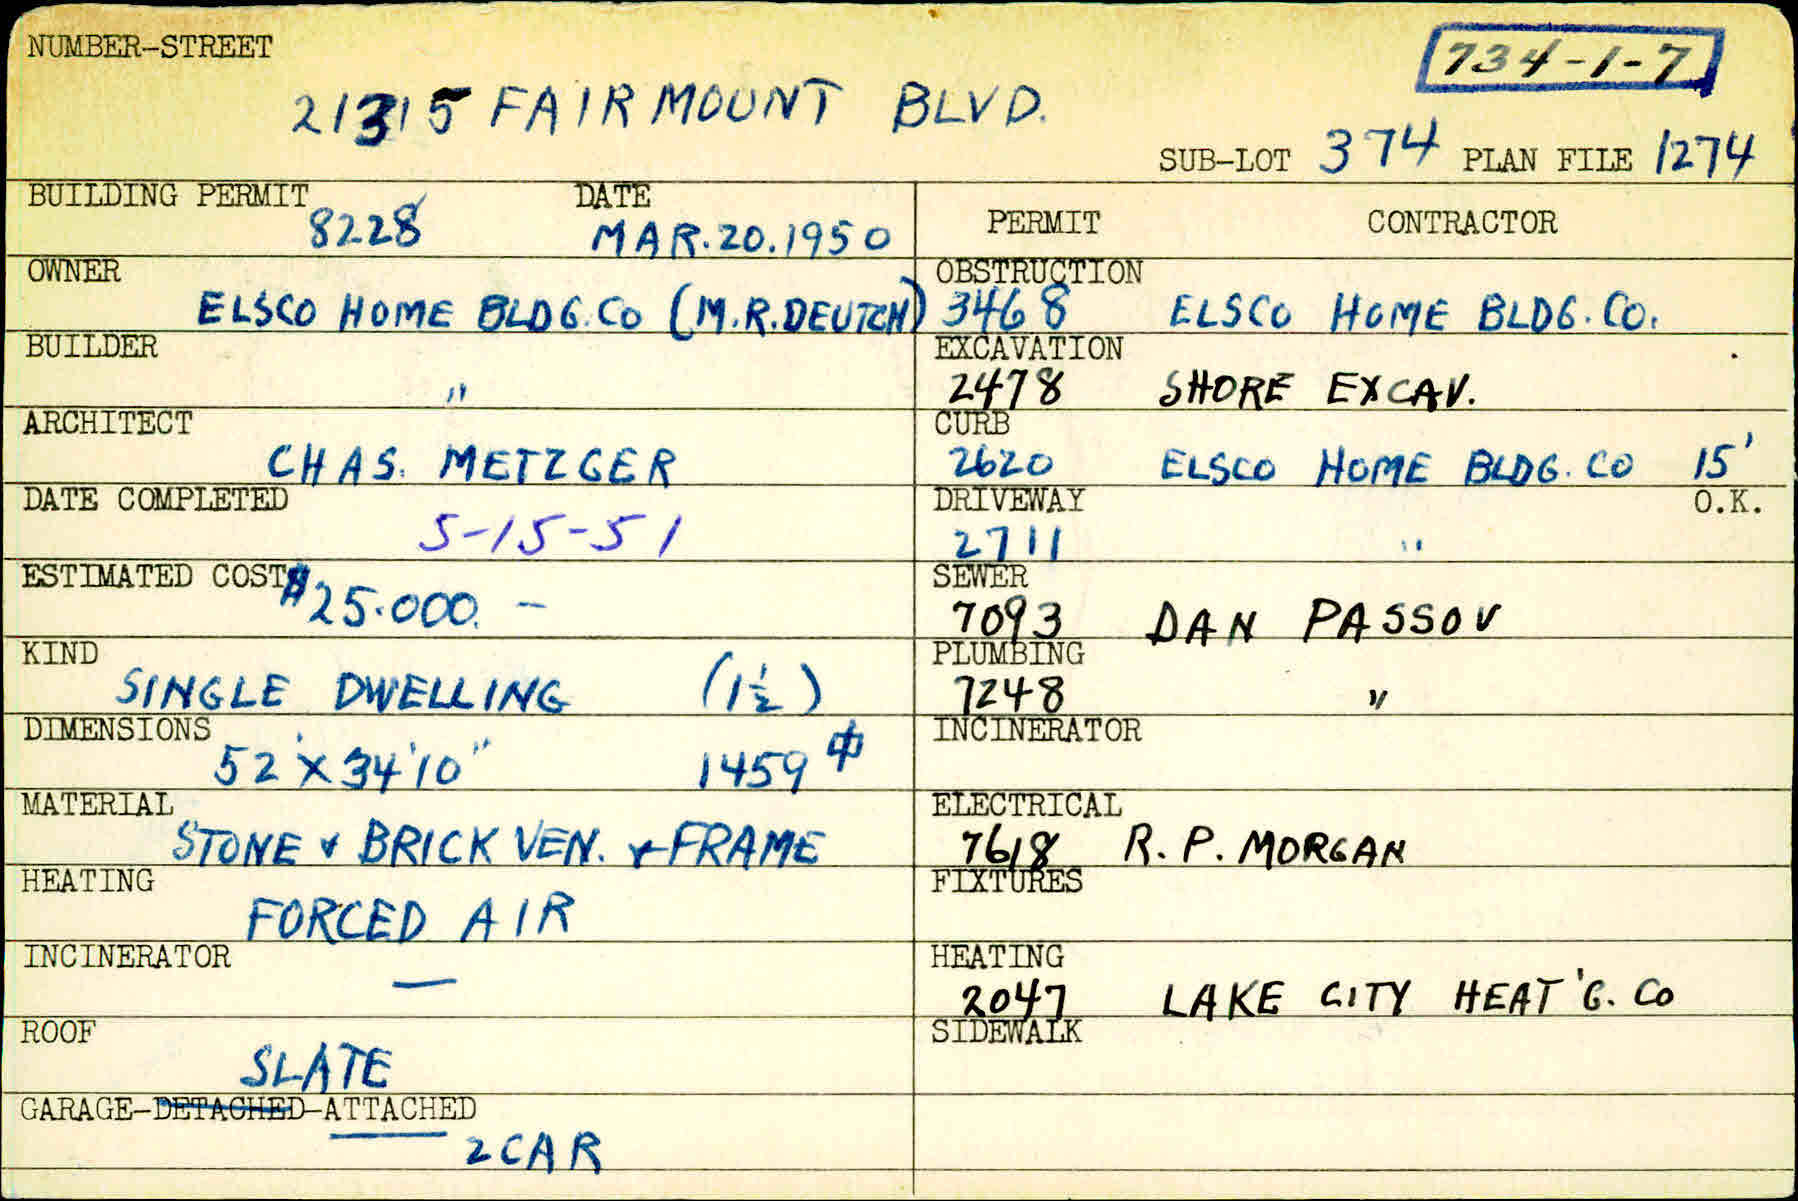 NUMBER-STREET
734-1-7
21315 FAIRMOUNT BLVD.
SUB-LOT 374 PLAN FILE 1274
BUILDING PERMIT DATE
8228 MAR. 20. 1950
PERMIT CONTRACTOR
OWNER
ELSCO HOME BLDG. CO (M.R. DEUTCH)
OBSTRUCTION
3468 ELSCO HOME BLDG. CO.
BUILDER
"
EXCAVATION
2478 SHORE EXCAV.
ARCHITECT
CHAS. METZGER
CURB
2620 ELSCO HOME BLDG. CO 15'
DATE COMPLETED
5-15-51
DRIVEWAY O.K.
2711 "
ESTIMATED COST
$25.000. –
SEWER
7093 DAN PASSOV
KIND
SINGLE DWELLING (1½)
PLUMBING
7248 "
DIMENSIONS
52' X 34'10" 1459 ⌽
INCINERATOR
MATERIAL
STONE & BRICK VEN. & FRAME
ELECTRICAL
7618 R. P. MORGAN
HEATING
FORCED AIR
FIXTURES
INCINERATOR
—
HEATING
2047 LAKE CITY HEAT'G. CO
ROOF
SLATE
SIDEWALK
GARAGE-DETACHED-ATTACHED
2 CAR